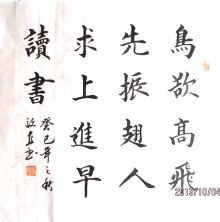 鳥欲高飛
先振翅人
求上進早
讀書
癸巳年之秋
2013/10/04